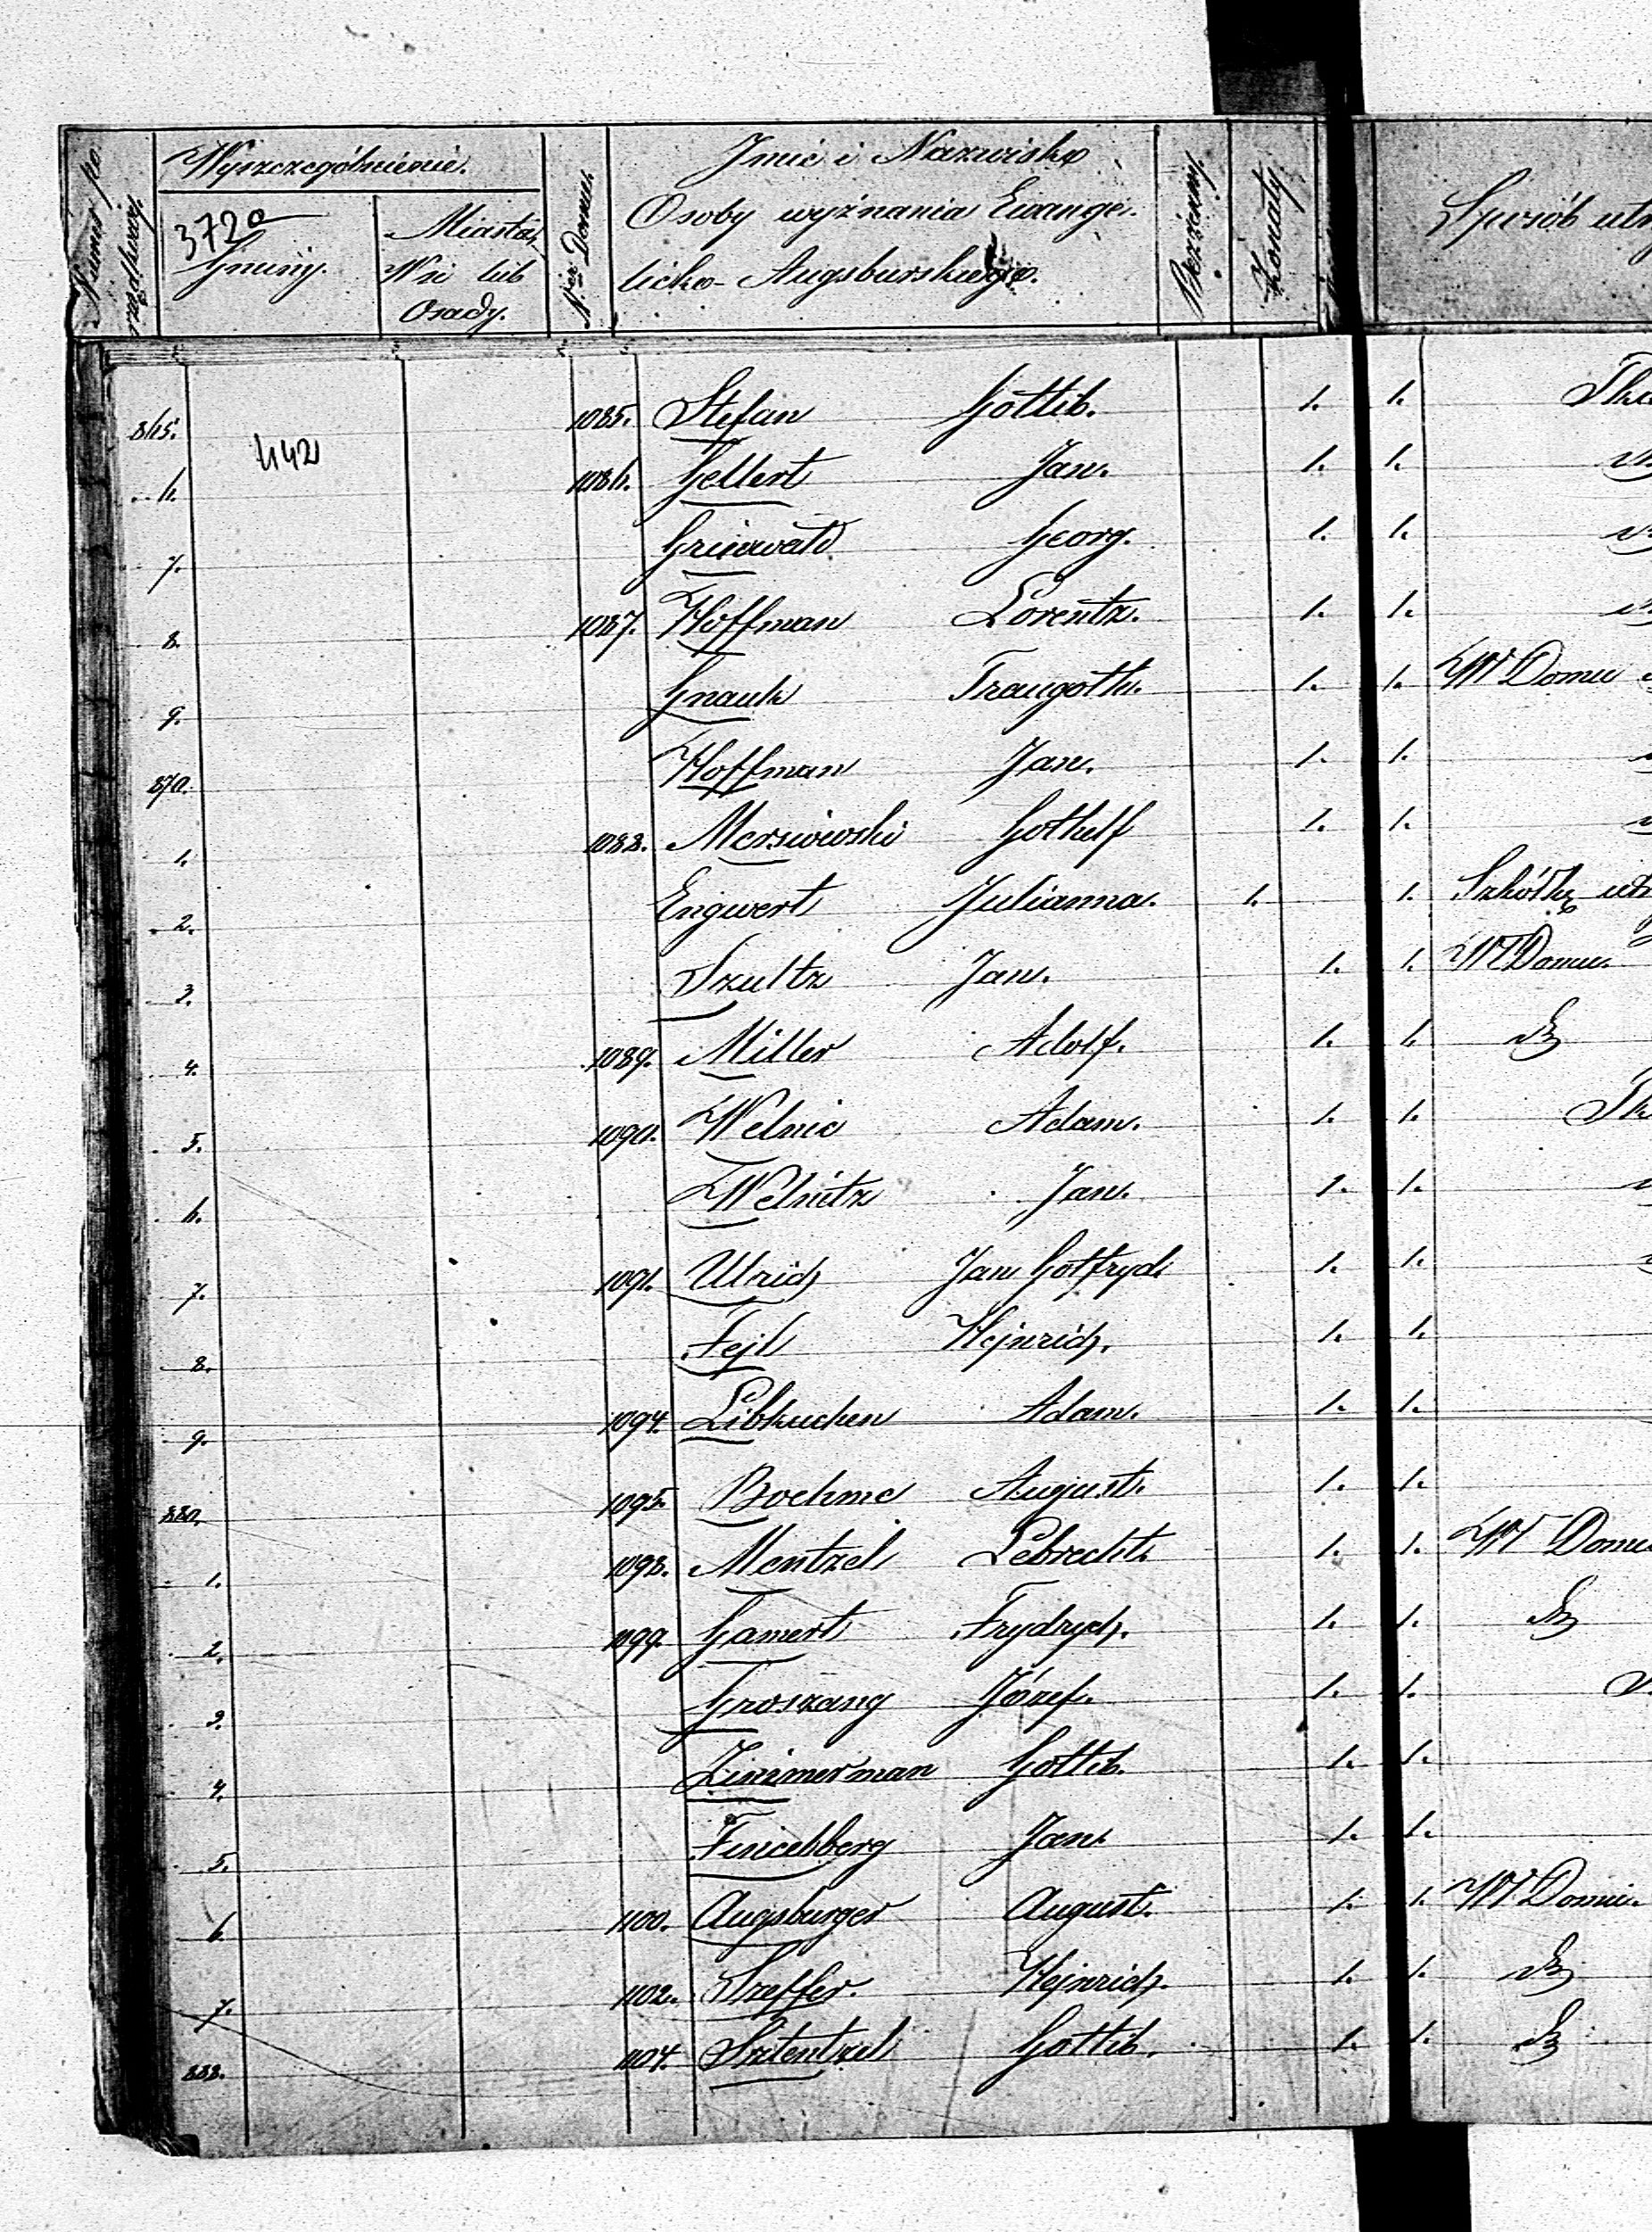 Numer po rządkowy.
Wyszczególnienie.
3720
Gminy.
Miasta,
Wsi lub
Osady.
Ner Domu.
Imie i Nazwisko
Osoby wyznania Ewange-
licko-Augsburskiego.
Bezżenny.
Żonaty.
Sposób
442
865. 1085. Stefan Gottlib. 1. 1.
6. 1086. Gellert Jan. 1. 1.
7. Grinwald Georg. 1. 1.
8. 1087. Hoffman Lorentz. 1. 1.
9. Gnauk Traugott. 1. 1. W Domu
870. Hoffman Jan. 1. 1.
1. 1088. Mersiowski Gothelf 1. 1.
2. Engwert Julianna. 1. 1. Szkółkę
3. Szultz Jan. 1. 1. W Domu.
4. 1089. Miller Adolf. 1. 1.
5. 1090. Welnic Adam. 1. 1.
6. Welnitz Jan. 1. 1.
7. 1091. Ulrich Jan Gotfryd. 1. 1.
8. Fejl Hejnrich. 1. 1.
9. 1094. Libkuchen Adam. 1. 1.
880. 1095. Boehme August. 1. 1.
1. 1098. Mentzel Lebrecht. 1. 1. W Domu
2. 1099. Gamert Frydrych. 1. 1.
3. Groszang Józef. 1. 1.
4. Zimmerman Gottlib. 1. 1.
5. Jan. 1. 1.
6. 1100. Augsburger August. 1. 1. W Domu.
7. 1102. Szeffer. Hejnrich. 1. 1.
888. 1104. Sztentzel Gottlib. 1. 1.